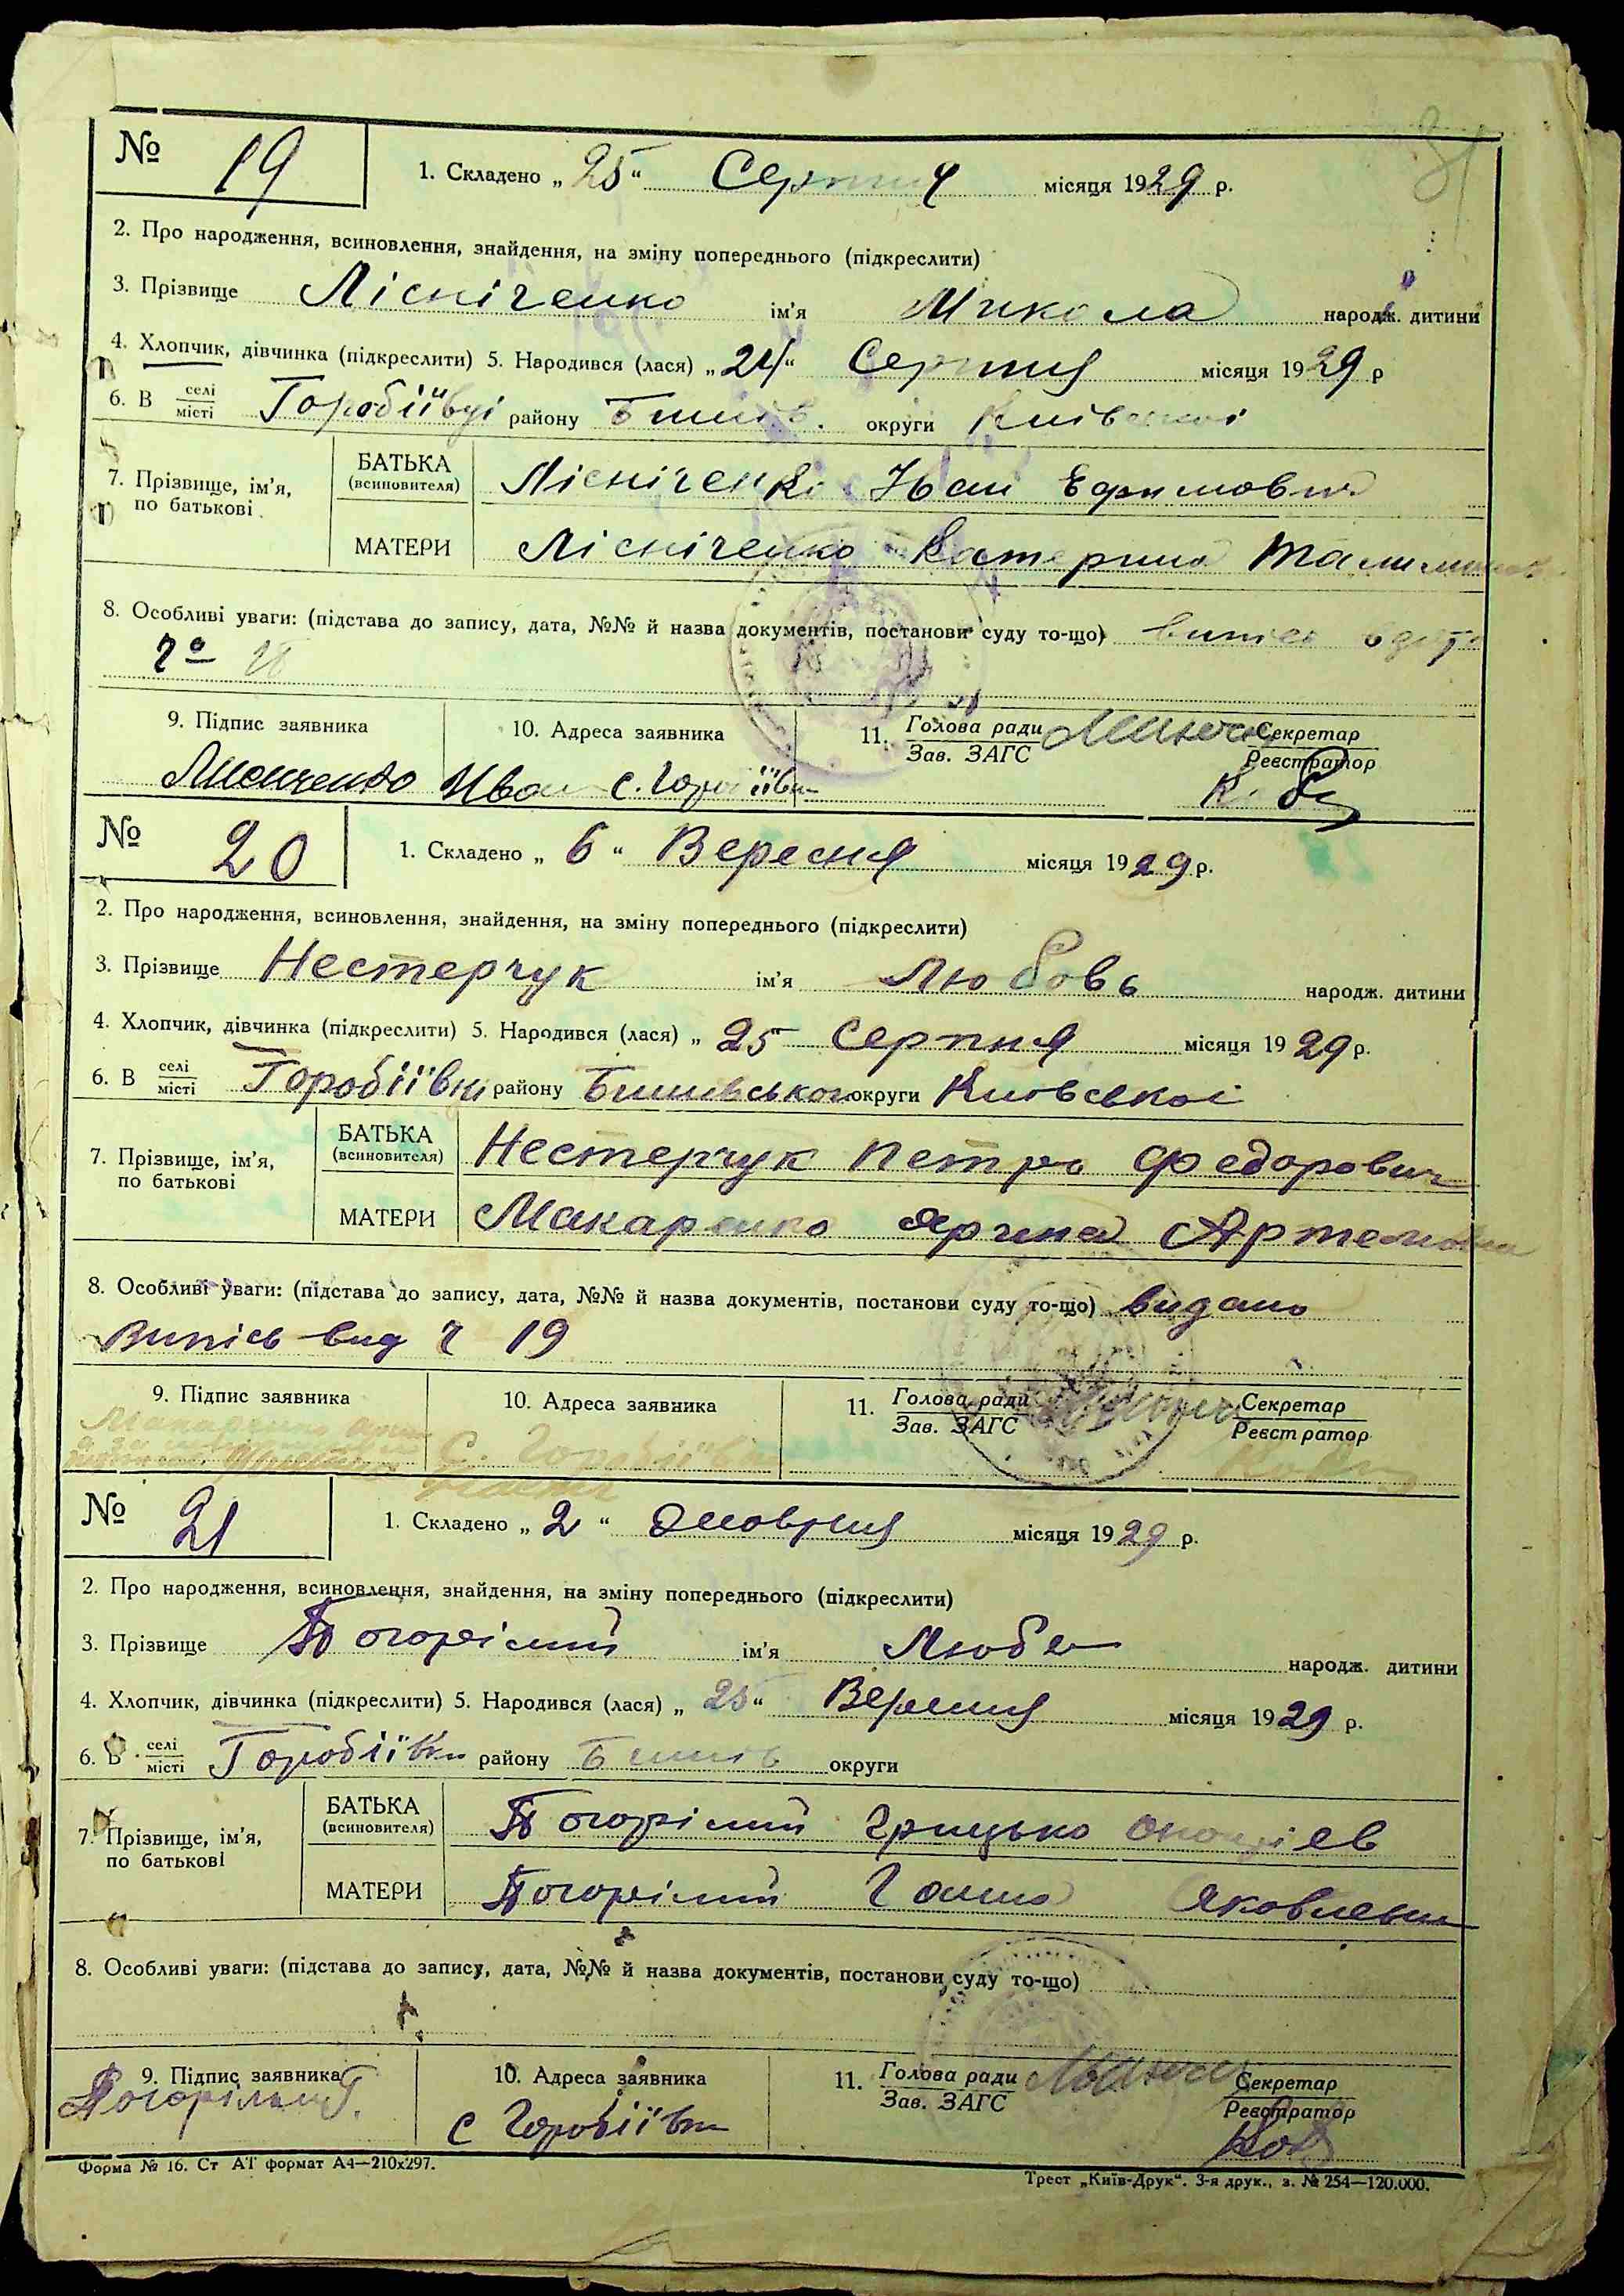 № 19
1. Складено „ 25 “ Серпня місяця 1929 р.
2. Про народження, всиновлення, знайдення, на зміну попереднього (підкреслити)
3. Прізвище Лісніченко ім'я Микола народж. дитини
4. Хлопчик, дівчинка (підкреслити) 5. Народився (лася) „ 24 “ Серпня місяця 1929 р
6. В селі/місті Горобіївці району Бишів. округи Київської
7. Прізвище, ім'я, по батькові
БАТЬКА (всиновителя) Лісніченко Іван Ефимович
МАТЕРИ Лісніченко Катерина
8. Особливі уваги: (підстава до запису, дата, №№ й назва документів, постанови суду то-що) випись
9. Підпис заявника 10. Адреса заявника 11. Голова ради/Зав. ЗАГС Секретар/Реєстратор
Иван с.
№ 20
1. Складено „ 6 “ Вересня місяця 1929 р.
2. Про народження, всиновлення, знайдення, на зміну попереднього (підкреслити)
3. Прізвище Нестерчук ім'я Любовь народж. дитини
4. Хлопчик, дівчинка (підкреслити) 5. Народився (лася) „ 25 “ Серпня місяця 1929 р.
6. В селі/місті Горобіївки району Бишивського округи Київської
7. Прізвище, ім'я, по батькові
БАТЬКА (всиновителя) Нестерчук Петро Федорович
МАТЕРИ Макаренко Ярина Артемовна
8. Особливі уваги: (підстава до запису, дата, №№ й назва документів, постанови суду то-що) видано
Випісь вид ч 19
9. Підпис заявника 10. Адреса заявника 11. Голова ради/Зав. ЗАГС Секретар/Реєстратор
с.
№ 21
1. Складено „ 2 “ Жовтня місяця 1929 р.
2. Про народження, всиновлення, знайдення, на зміну попереднього (підкреслити)
3. Прізвище Погорілий ім'я Люба народж. дитини
4. Хлопчик, дівчинка (підкреслити) 5. Народився (лася) „ 25 “ Вересня місяця 1929 р.
6. В селі/місті Горобіївки району Бишів округи
7. Прізвище, ім'я, по батькові
БАТЬКА (всиновителя) Погорілий Грицько
МАТЕРИ Погорілий Ганна Яковлевна
8. Особливі уваги: (підстава до запису, дата, №№ й назва документів, постанови суду то-що)
9. Підпис заявника 10. Адреса заявника 11. Голова ради/Зав. ЗАГС Секретар/Реєстратор
Погорілий Г. с Горобіївки
Форма № 16. Ст АТ формат А4—210х297.
Трест „Київ-Друк“. 3-я друк., з. № 254—120.000.